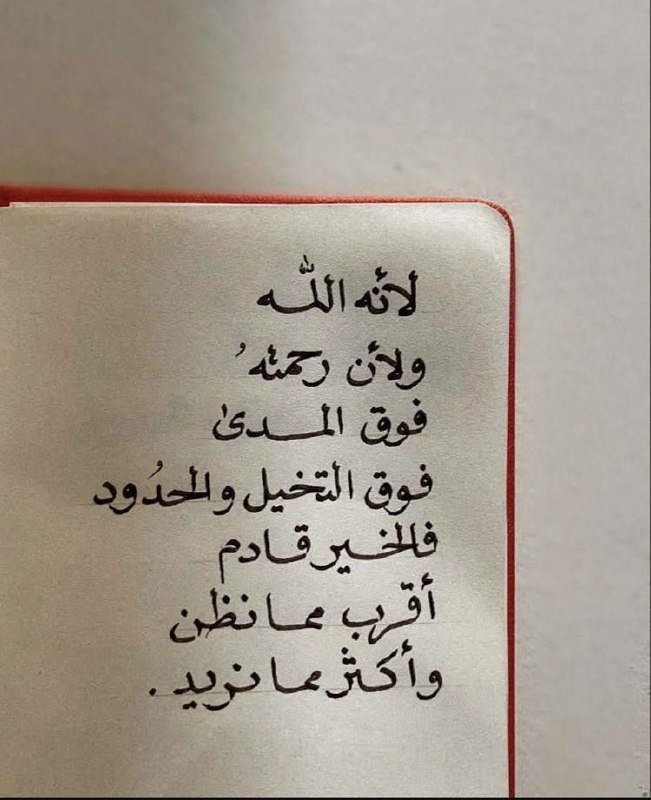 لأنه الله
ولأن رحمتهُ
فوق المــدىٰ
فوق التخيل والحدُود
فالخير قــادم
أقرب ممـا نظن
وأكـثر ممـا نريد .